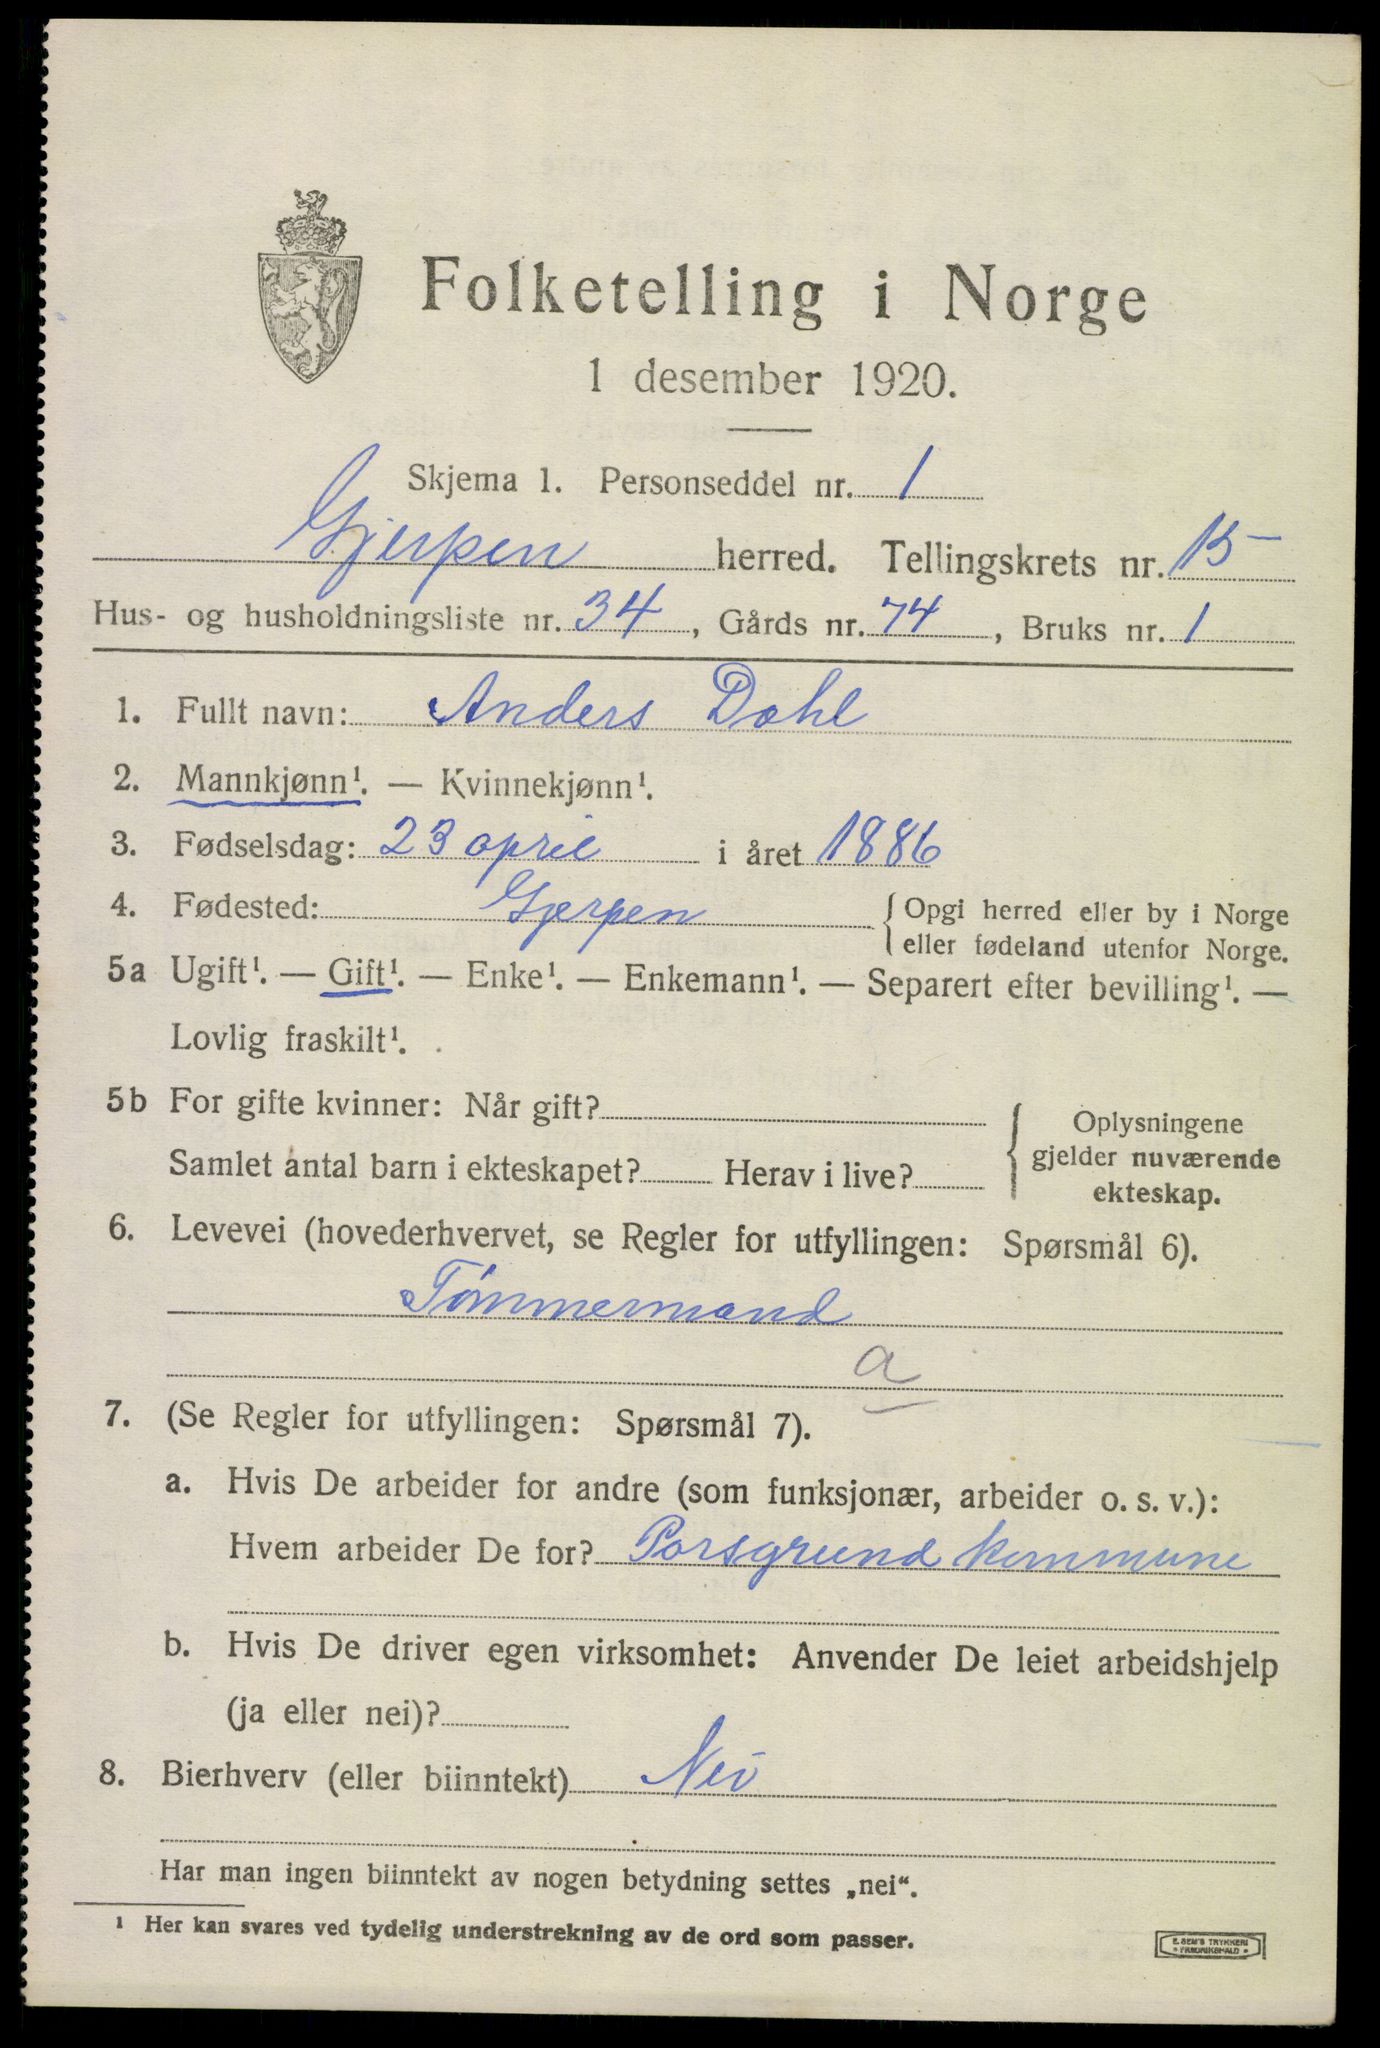 Folketelling i Norge
1 desember 1920.
Skjema 1. Personseddel nr. 1
Gjerpen herred. Tellingskrets nr. 15
Hus- og husholdningsliste nr. 34, Gårds nr. 74, Bruks nr. 1
1. Fullt navn: Anders Dahl
2. Mannkjønn¹. — Kvinnekjønn¹.
3. Fødselsdag: 23 april i året 1886
4. Fødested: Gjerpen { Opgi herred eller by i Norge
eller fødeland utenfor Norge.
5a Ugift¹. — Gift¹. — Enke¹. — Enkemann¹. — Separert efter bevilling¹. —
Lovlig fraskilt¹.
5b For gifte kvinner: Når gift? { Oplysningene
gjelder nuværende
ekteskap.
Samlet antal barn i ekteskapet? Herav i live?
6. Levevei (hovederhvervet, se Regler for utfyllingen: Spørsmål 6).
Tømmermand
a
7. (Se Regler for utfyllingen: Spørsmål 7).
a. Hvis De arbeider for andre (som funksjonær, arbeider o. s. v.):
Hvem arbeider De for? Porsgrund kommune
b. Hvis De driver egen virksomhet: Anvender De leiet arbeidshjelp
(ja eller nei)?
8. Bierhverv (eller biinntekt) Nei
Har man ingen biinntekt av nogen betydning settes „nei".
¹ Her kan svares ved tydelig understrekning av de ord som passer.
E. SEM'S TRYKKERI
FREDRIKSHALD